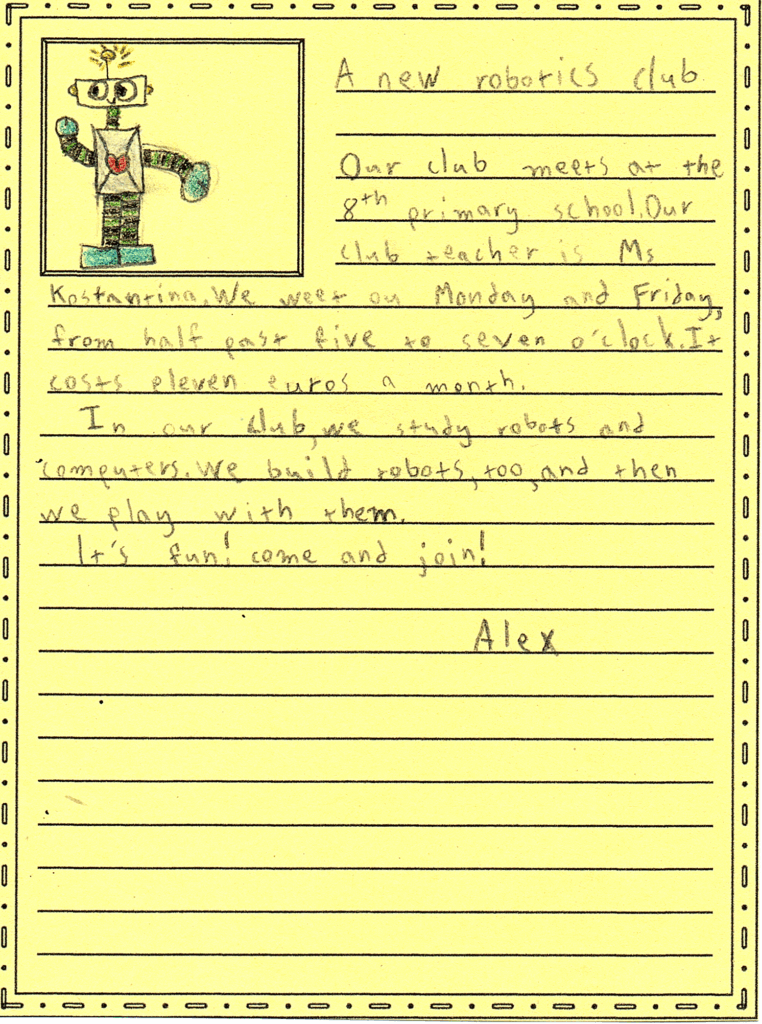 A new robotics club
Our club meets at the
8th primary school.Our
club teacher is Ms
Kostantina.We weet on Monday and Friday,
from half past five to seven o'clock.It
costs eleven euros a month.
In our club,we study robots and
computers.We build robots,too,and then
we play with them.
It's fun! come and join!
Alex